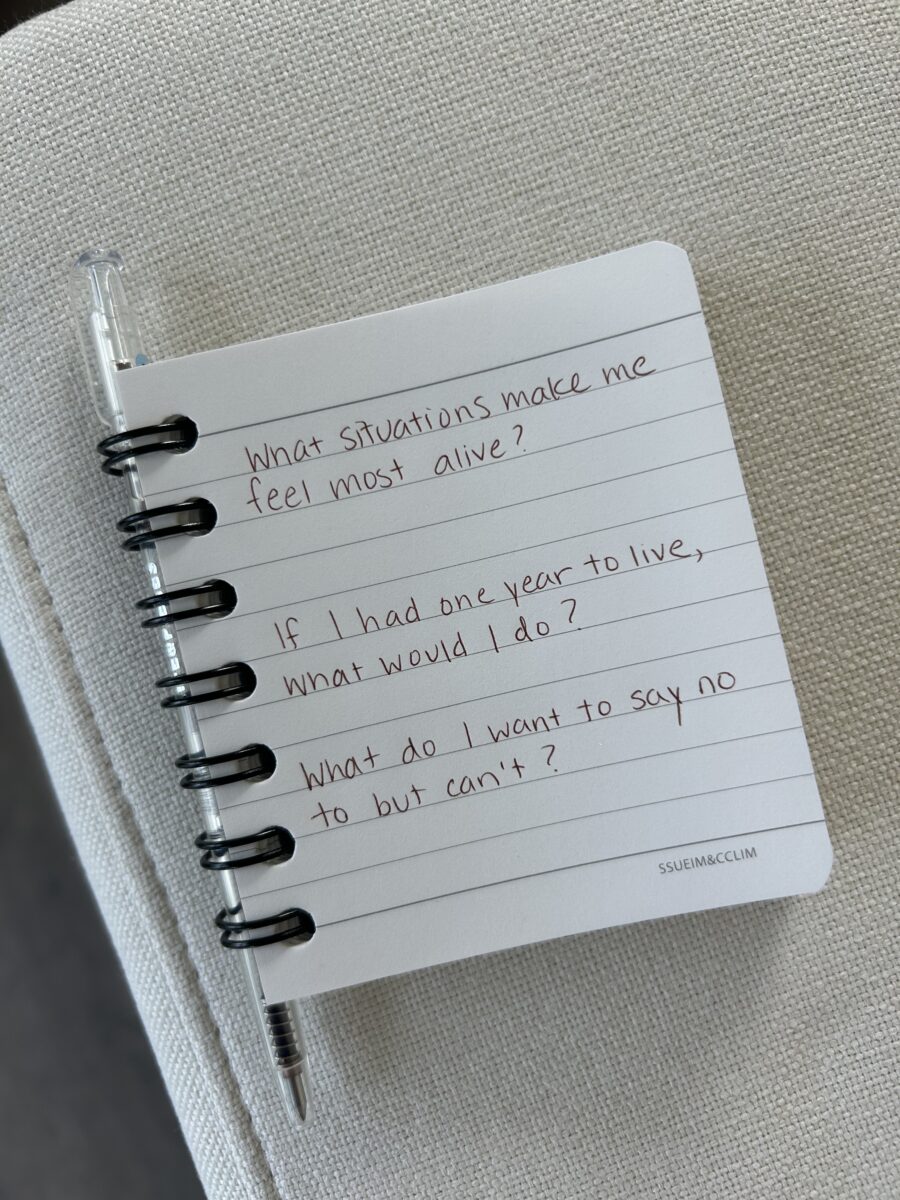 What situations make me
feel most alive?
If I had one year to live,
what would I do?
What do I want to say no
to but can't?
SSUEIM&CCLIM